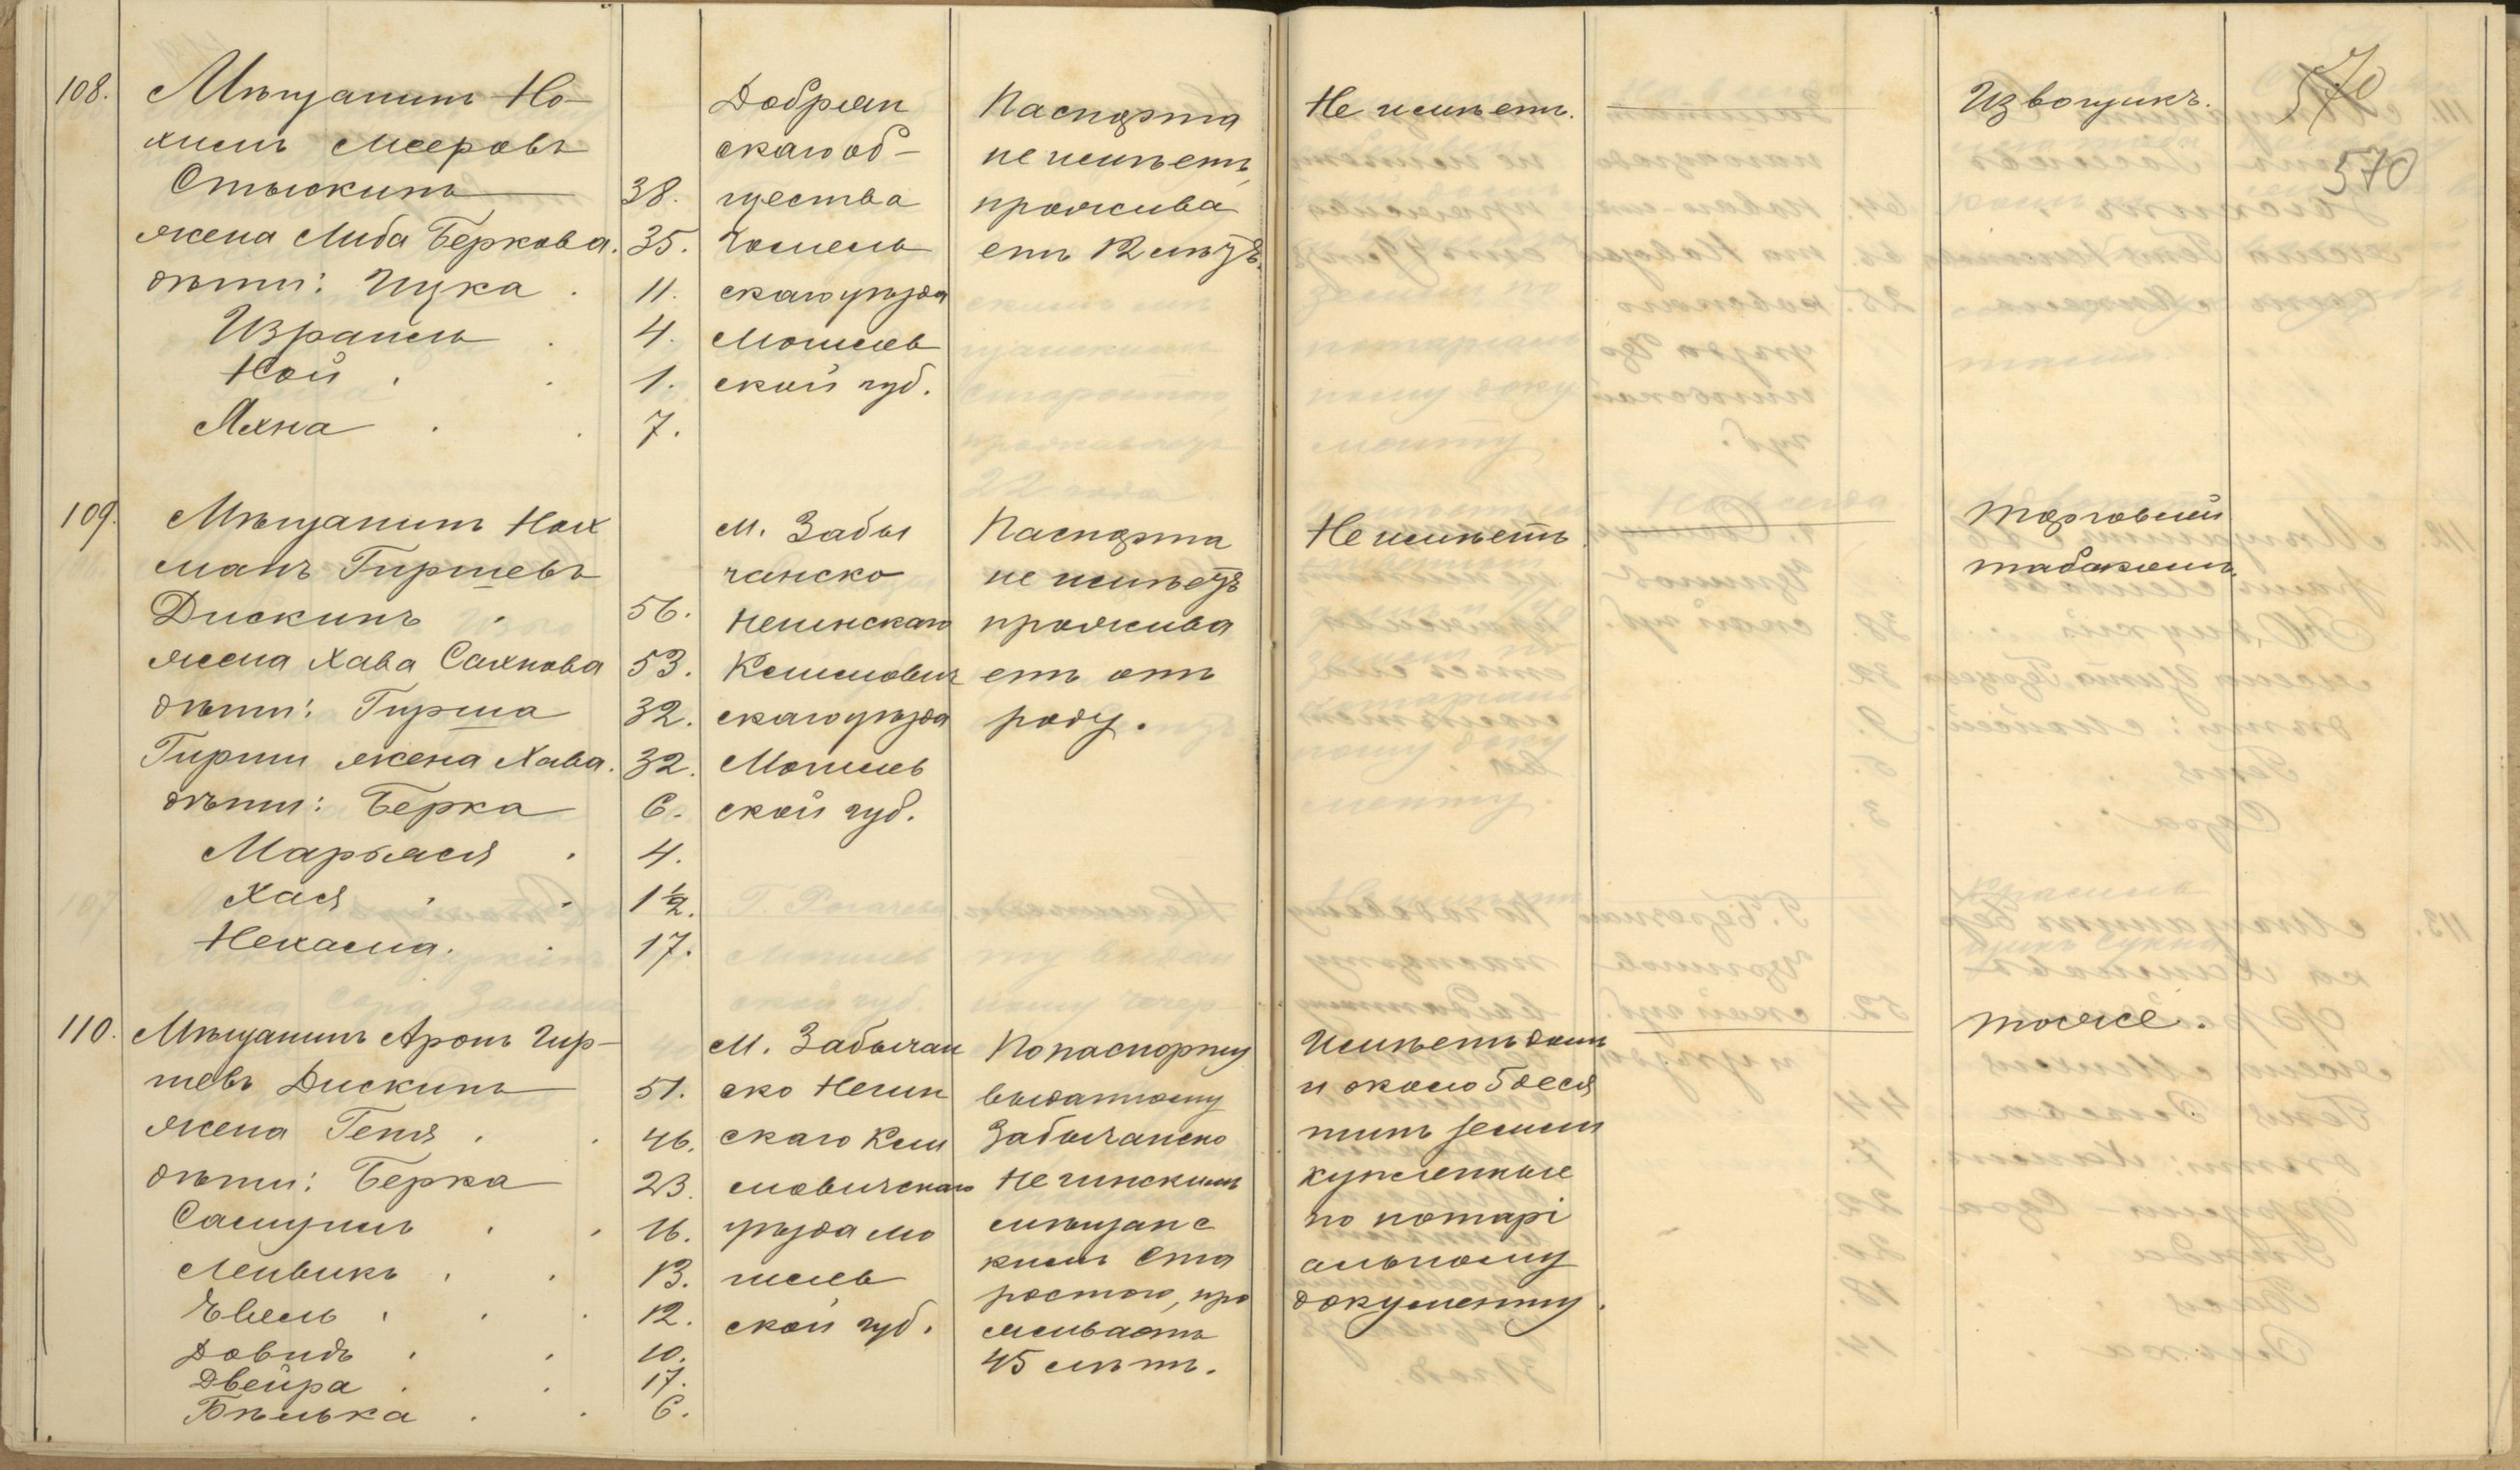 108.
Мѣщанинъ Но-
химъ Мееровъ
Стыскинъ 38.
жена Либа Беркова. 35.
дѣти: Ицка . 11.
Израиль . 4.
Ной . . 1.
Яхна . . 7.
Добрян
скаго об-
щества
Гомель
скаго уѣзда
Могилев
ской губ.
Паспорта
не имѣетъ,
прожива
етъ 12 лѣтъ.
Не имѣетъ.
Извощикъ.
570
570
109.
Мѣщанинъ Нох
манъ Гиршевъ
Дискинъ . 56.
жена Хава Сахнова 53.
дѣти: Гирша 32.
Гирши жена Хава. 32.
дѣти: Берка 6.
Марьяся . 4.
Хася . . 1½.
Нехама. . 17.
М. Забы
чанско
Негинскаго
Климович
скаго уѣзда
Могилев
ской губ.
Паспорта
не имѣетъ
прожива
етъ отъ
роду.
Не имѣетъ.
Торговый
табакомъ.
110.
Мѣщанинъ Аронъ Гир-
шевъ Дискинъ 51.
жена Геня . . 46.
дѣти: Берка 23.
Самуилъ . . 16.
Лейвикъ . . 13.
Евель . . . 12.
Довидъ . . 10.
Двейра . . 17.
Бѣлька . . 6.
М. Забычан
ско Негин
скаго Кли
мовичскаго
уѣзда Мо
гилев
ской губ.
По паспорту
выданному
Забычанско
Негинскимъ
мѣщанс
кимъ Ста
ростою, про
живаетъ
45 лѣтъ.
Имѣетъ домъ
и около 5 деся
тинъ земли
купленные
по нотарі
альному
документу.
тоже.